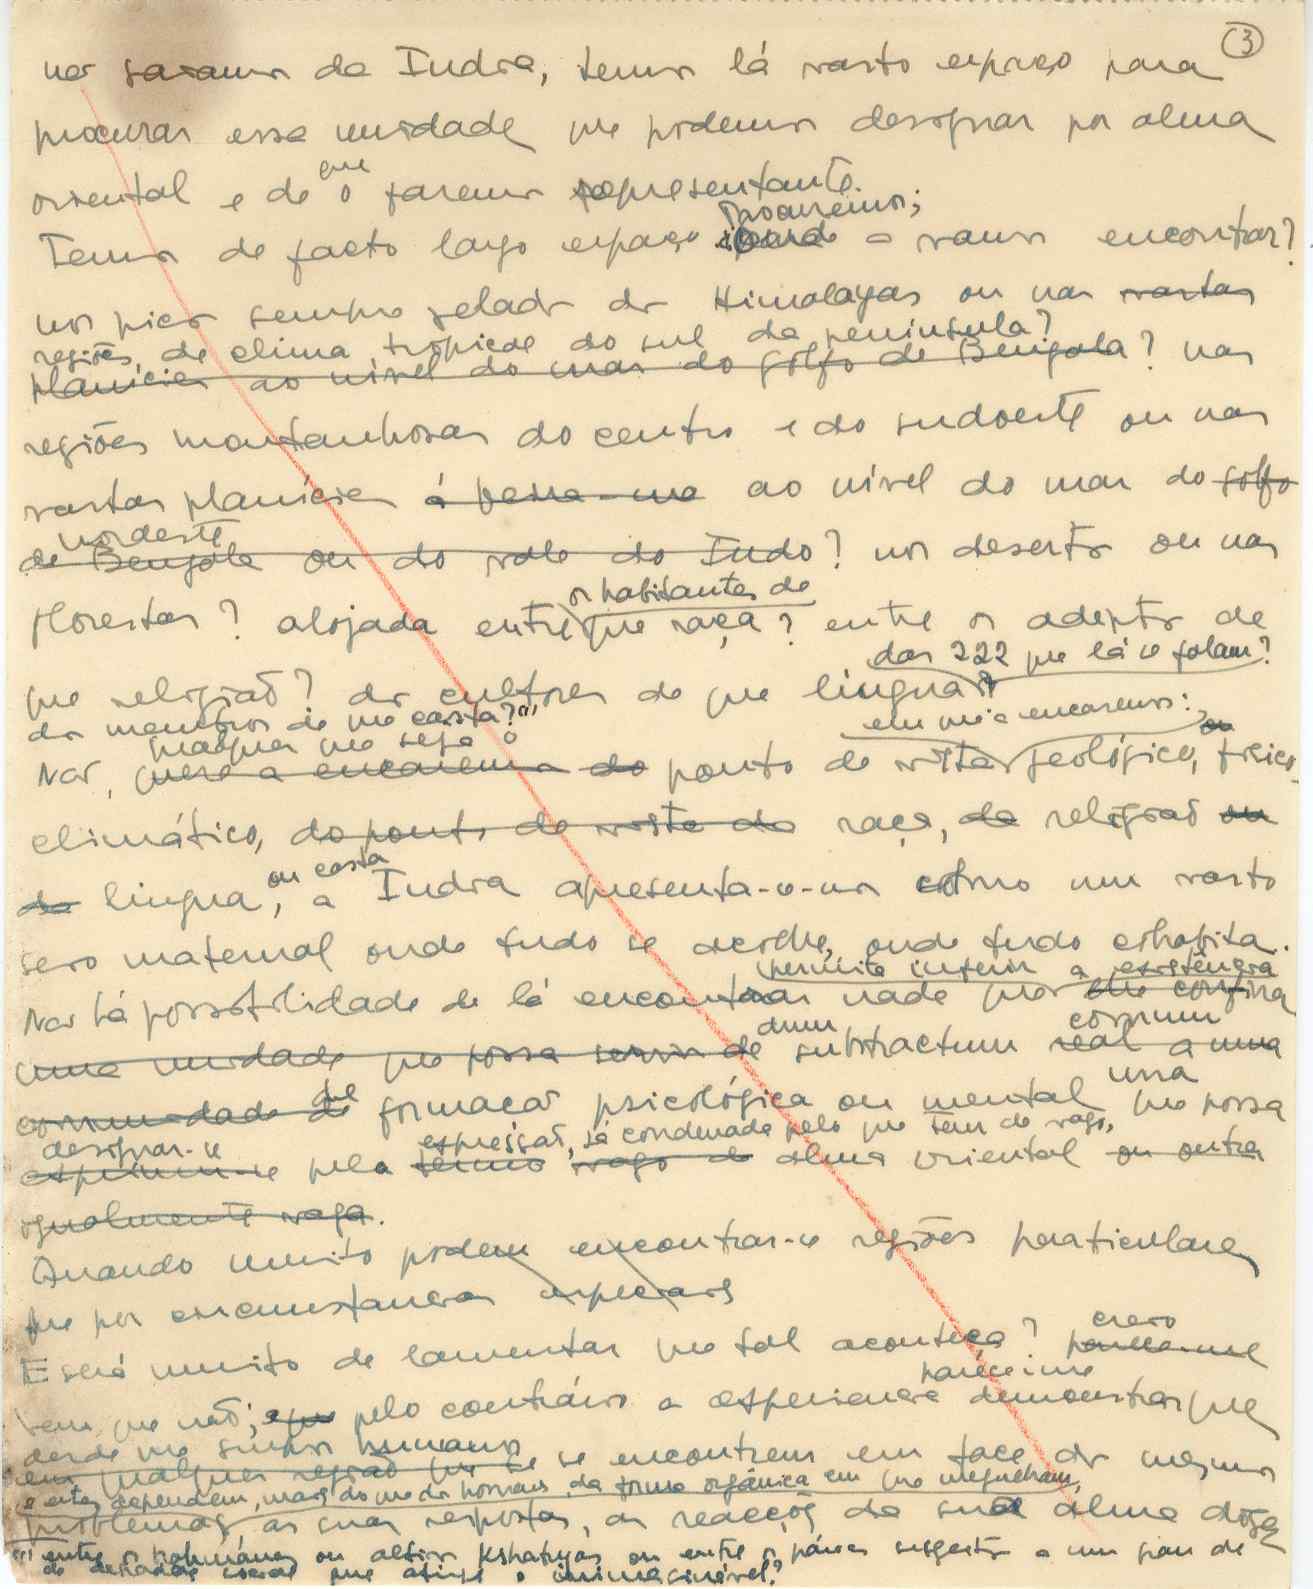 3
nos da India, temos lá vasto espaço para
procurar essa unidade que podemos designar por alma
oriental e de que o faremos representante.
procuremos;
Temos de facto largo espaço a vamos encontrar?
nos picos sempre gelados dos Himalayas ou nas vastas
regiões de clima tropical do sul da península?
planícies ao nivel do mar do golfo de Bengala? nas
regiões montanhosas do centro e do sudoeste ou nas
vastas planícies ao nível do mar do golfo
nordeste
de Bengala ou do vale do Indo? nos desertos ou nas
os habitantes de
florestas? alojada entre que raça? entre os adeptos de
das 222 que lá se falam?
que religião? dos cultores de que lingua?
dos membros de que casta? (1)
em que a encaremos:
qualquer que seja o
Não, ponto de vista geológico, fisico
climático, do ponto de vista da raça, da religião ou
ou casta
da lingua, a India apresenta-se-nos como um vasto
seio maternal onde tudo se acolhe, onde tudo cohabita.
permita inferir a existência
Não há possibilidade de lá encontrar nada que
dum comum
uma unidade que possa servir de substractum real a uma
uma
formação psicológica ou mental que possa
designar-se expressão, já condenada pelo que tem de vago,
exprimir-se pelo termo vago de alma oriental ou outra
igualmente vaga.
Quando muito podem encontrar-se regiões particulares
que por circunstancias especiais
creio
E será muito de lamentar que tal aconteça?
parece-me
bem que não; pelo contrário a experiencia demonstrar que
desde que sempre humanos
em qualquer região que se se encontrem em face dos mesmos
e estes dependem, mais do que dos homens, da forma orgânica em que
problemas, as suas respostas, as reacções da sua alma
(1) entre os brahmánes ou altivos Kshatryas ou entre os párias sugeitos a um grau de
social que atinge o inimaginável?